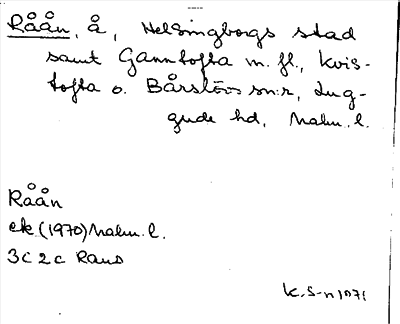 Råån, å, Helsingborgs stad
samt Gantofta m. fl., Kvis-
tofta o. Bårslövs sn:r, Lug-
gude hd, Malm. l.
Råån
ek. (1970) Malm. l.
3C 2c Raus
K. S-n 1971